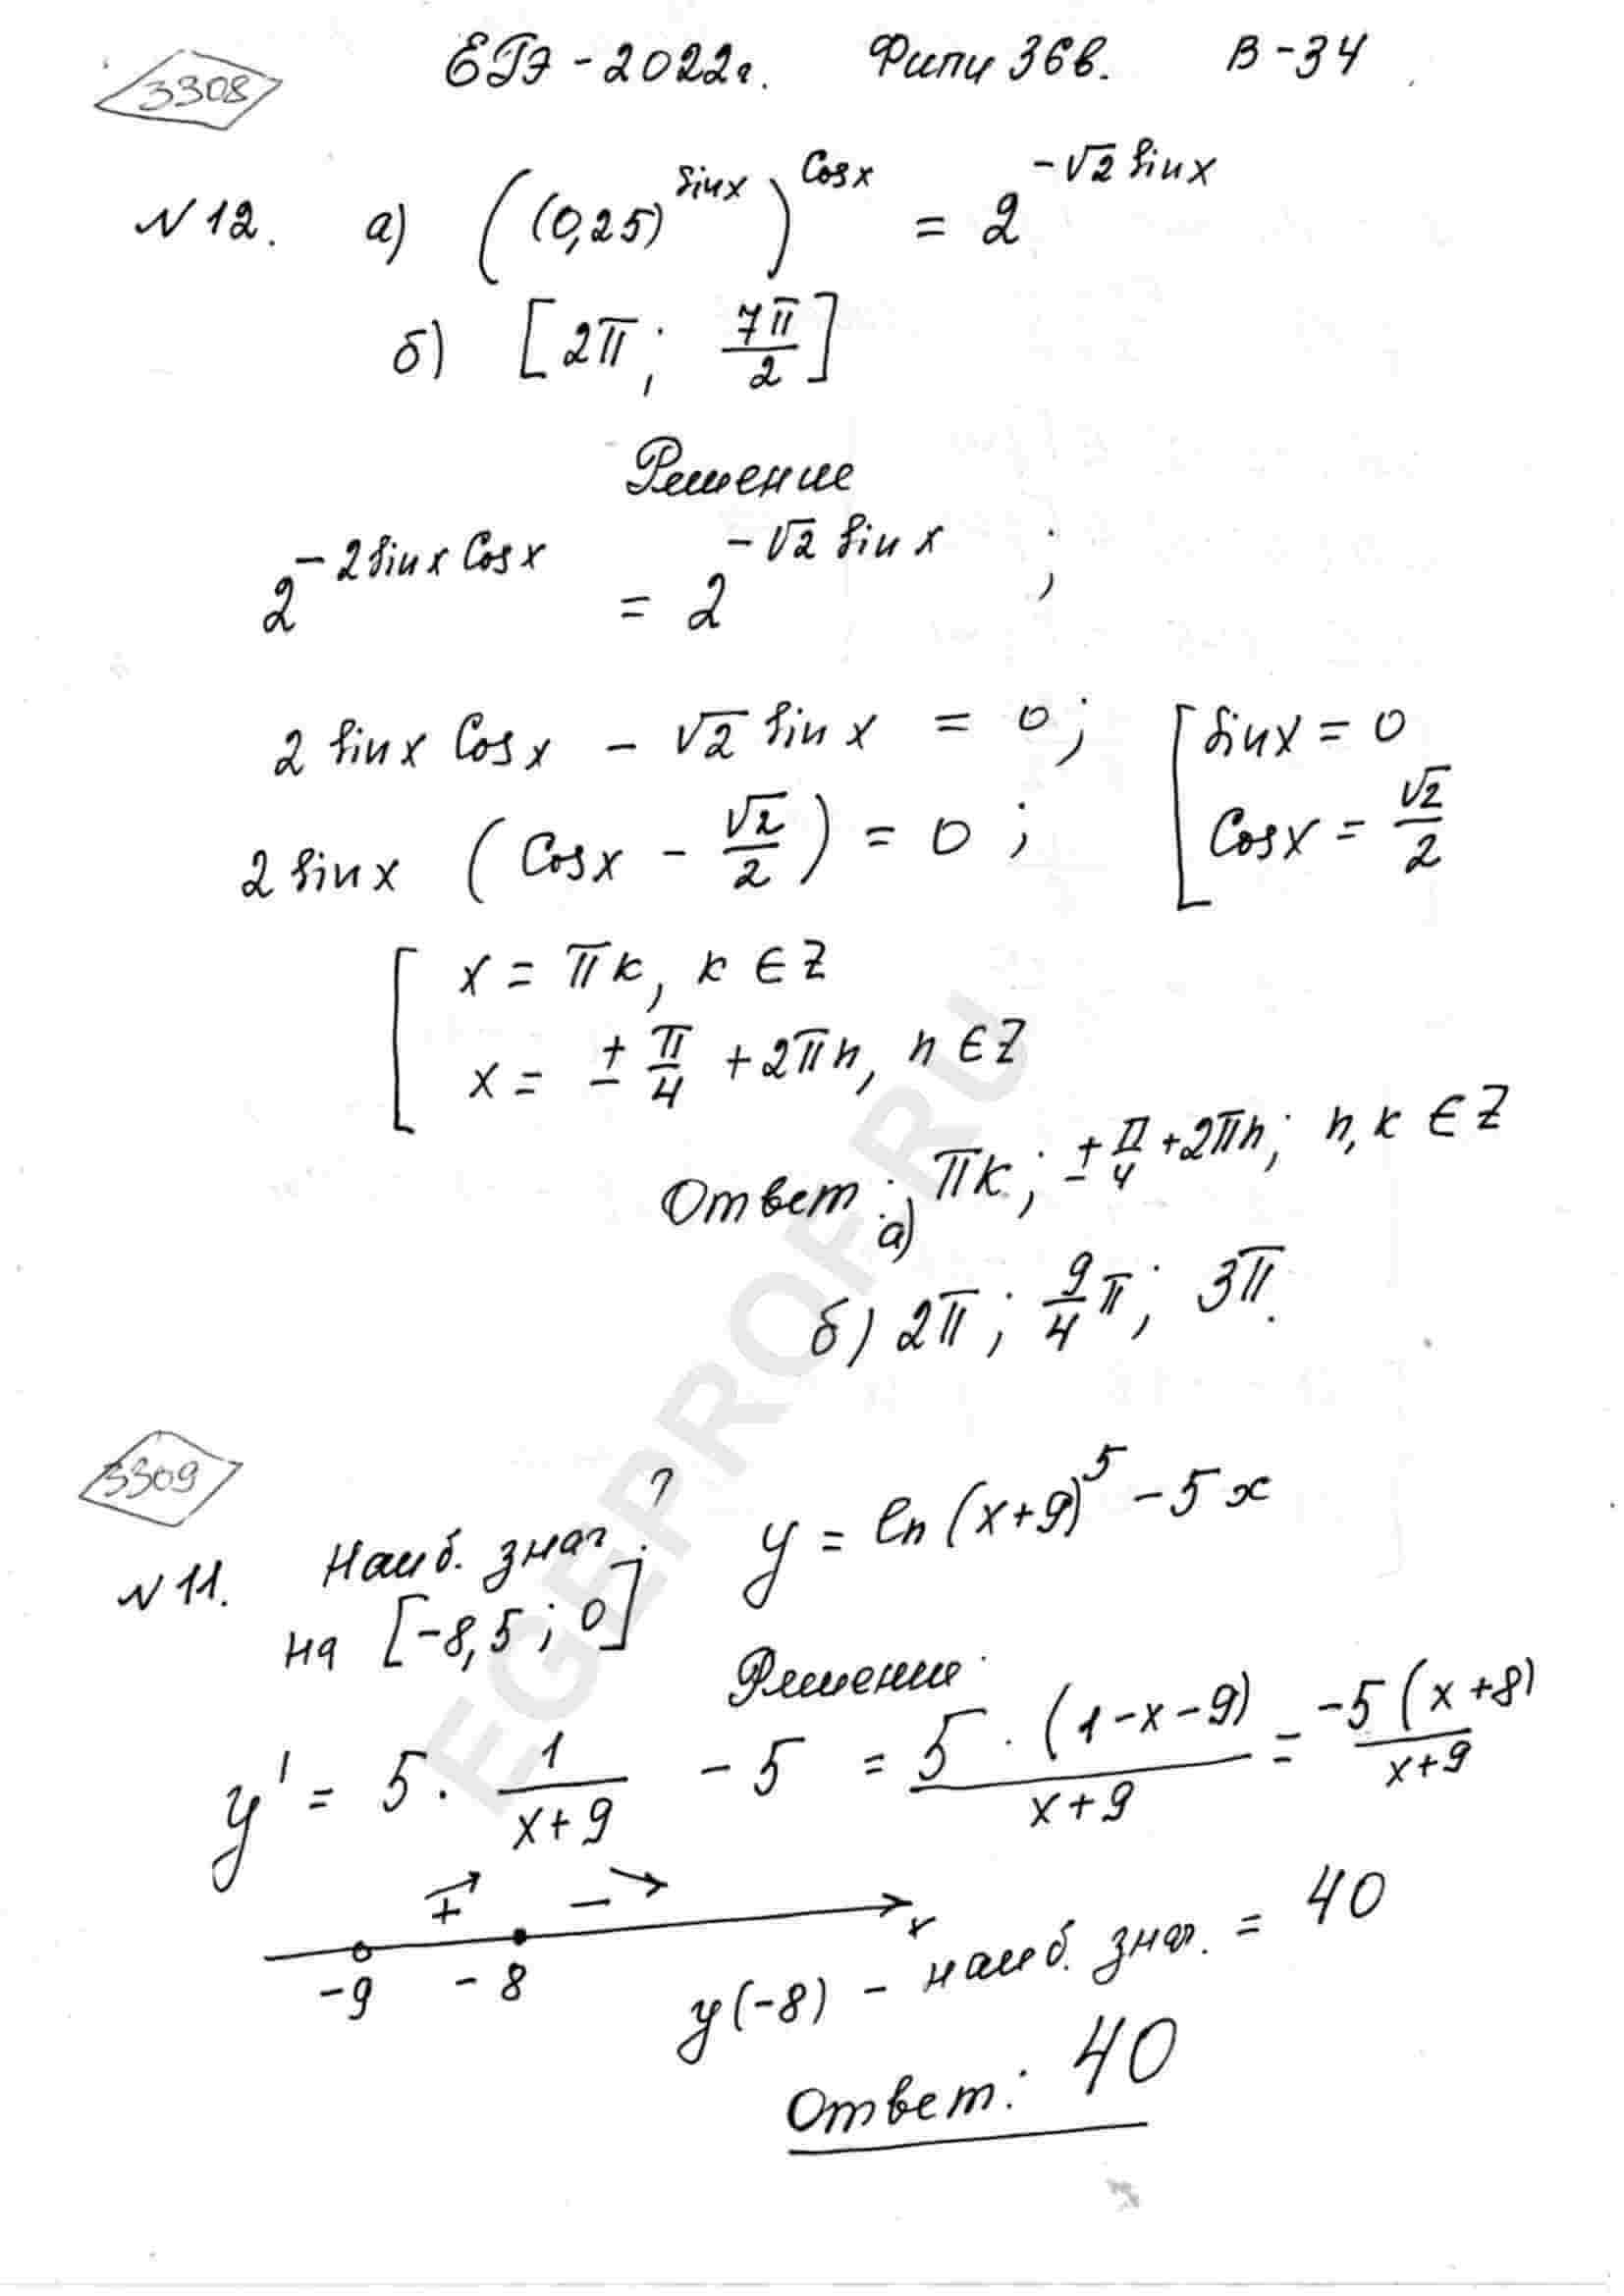 3308
ЕГЭ - 2022г. Фипи 36в. В-34
№12. а) ((0,25)^sinx)^Cosx = 2^(-√2 sinx)
б) [2π; 7π/2]
Решение
2^(-2sinx Cosx) = 2^(-√2 sinx);
2 sinx Cosx - √2 sinx = 0; [ sinx = 0
2 sinx (Cosx - √2/2) = 0; Cosx = √2/2
[ x = πk, k ∈ Z
x = ± π/4 + 2πn, n ∈ Z
Ответ: а) πk; ± π/4 + 2πn; n, k ∈ Z
б) 2π; 9/4 π; 3π.
3309
№11. Наиб. знач ? y = ln(x+9)^5 - 5x
на [-8,5; 0]
Решение
y' = 5 · 1/(x+9) - 5 = 5 · (1-x-9)/(x+9) = -5(x+8)/(x+9)
+ - x
-9 -8 y(-8) - наиб. знач. = 40
Ответ: 40
EGEPROF.RU